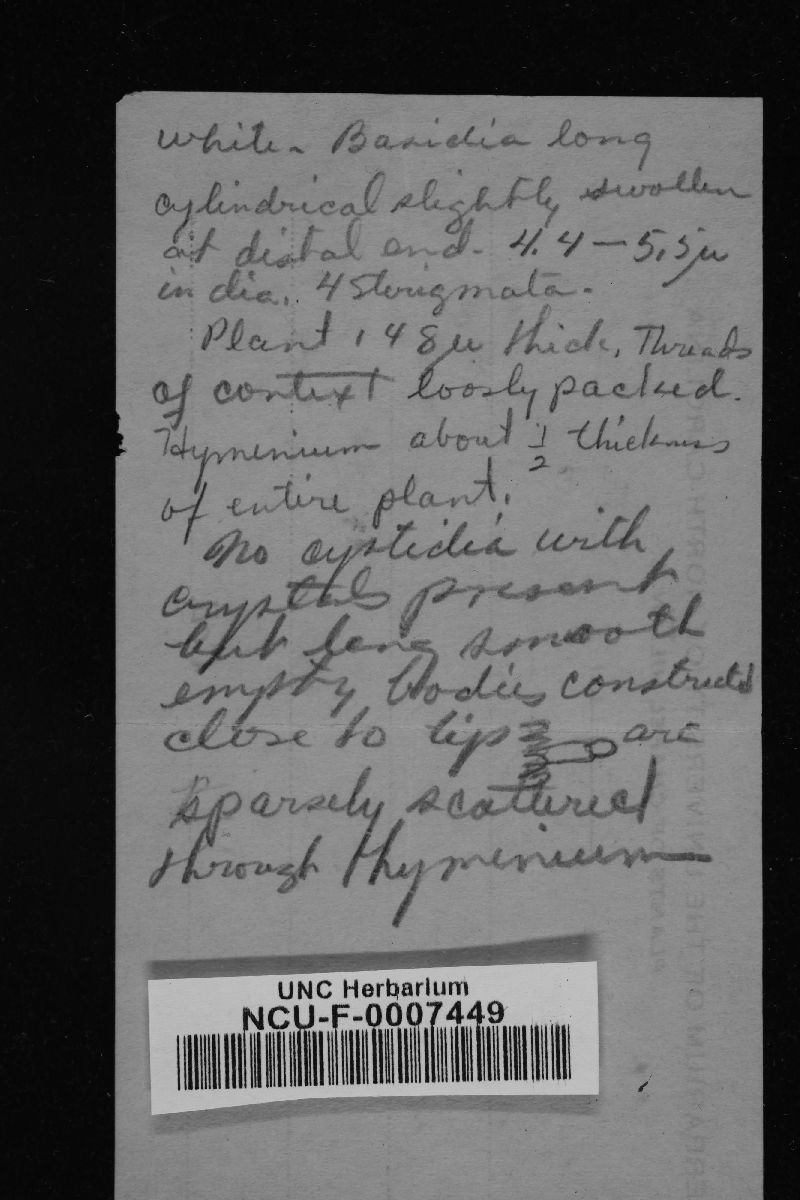 white. Basidia long
cylindrical slightly swollen
at distal end. 4.4 — 5.5µ
in dia. 4 Sterigmata.
Plant 148µ thick. Threads
of context loosly packed.
Hymenium about 1/2 thickness
of entire plant.
No cystidia with
crystals present
but long smooth
empty bodies constructed
close to tips are
sparsely scattered
through hymenium
UNC Herbarium
NCU-F-0007449